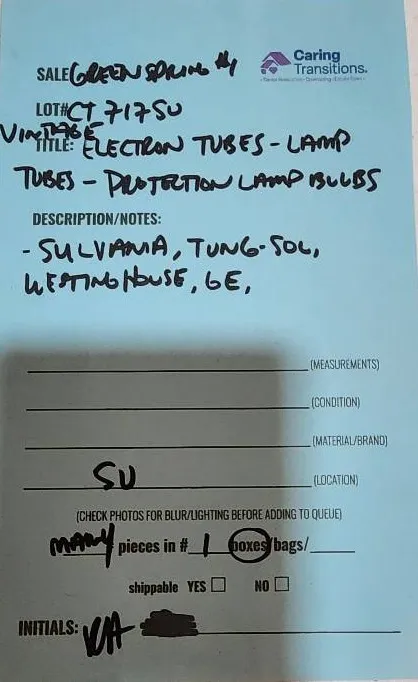 SALE GREENSPRING #1
Caring Transitions.
LOT# CT 717SU
VINTAGE
TITLE: ELECTRON TUBES - LAMP
TUBES - PROTECTION LAMP BULBS
DESCRIPTION/NOTES:
- SULVANIA, TUNG-SOL,
WESTINGHOUSE, GE,
(MEASUREMENTS)
(CONDITION)
(MATERIAL/BRAND)
SU (LOCATION)
(CHECK PHOTOS FOR BLUR/LIGHTING BEFORE ADDING TO QUEUE)
MANY pieces in # 1 boxes/bags/
shippable YES NO
INITIALS: KA